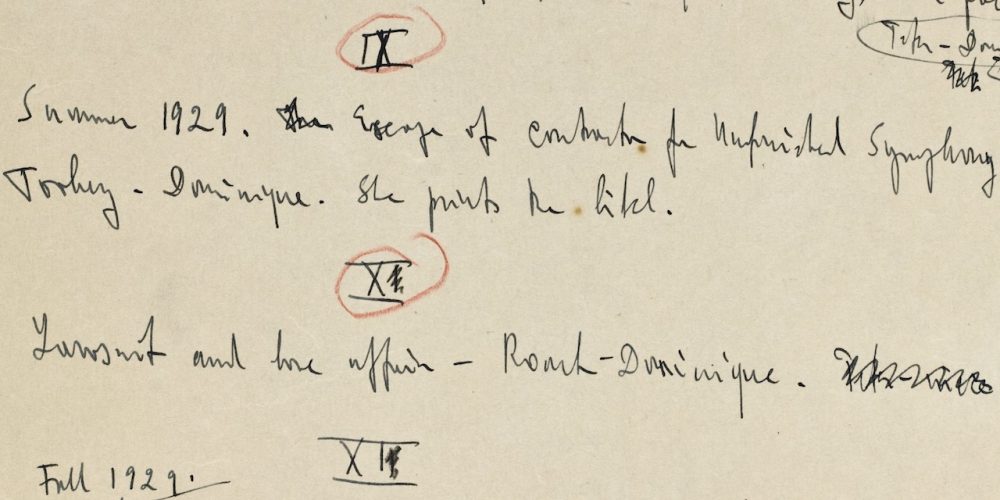 IX
Summer 1929. Escape of contractor for Unfinished Symphony
Toohey - Dominique. She points the
X
Lawsuit and love affair - Roark-Dominique.
XI
Fall 1929.